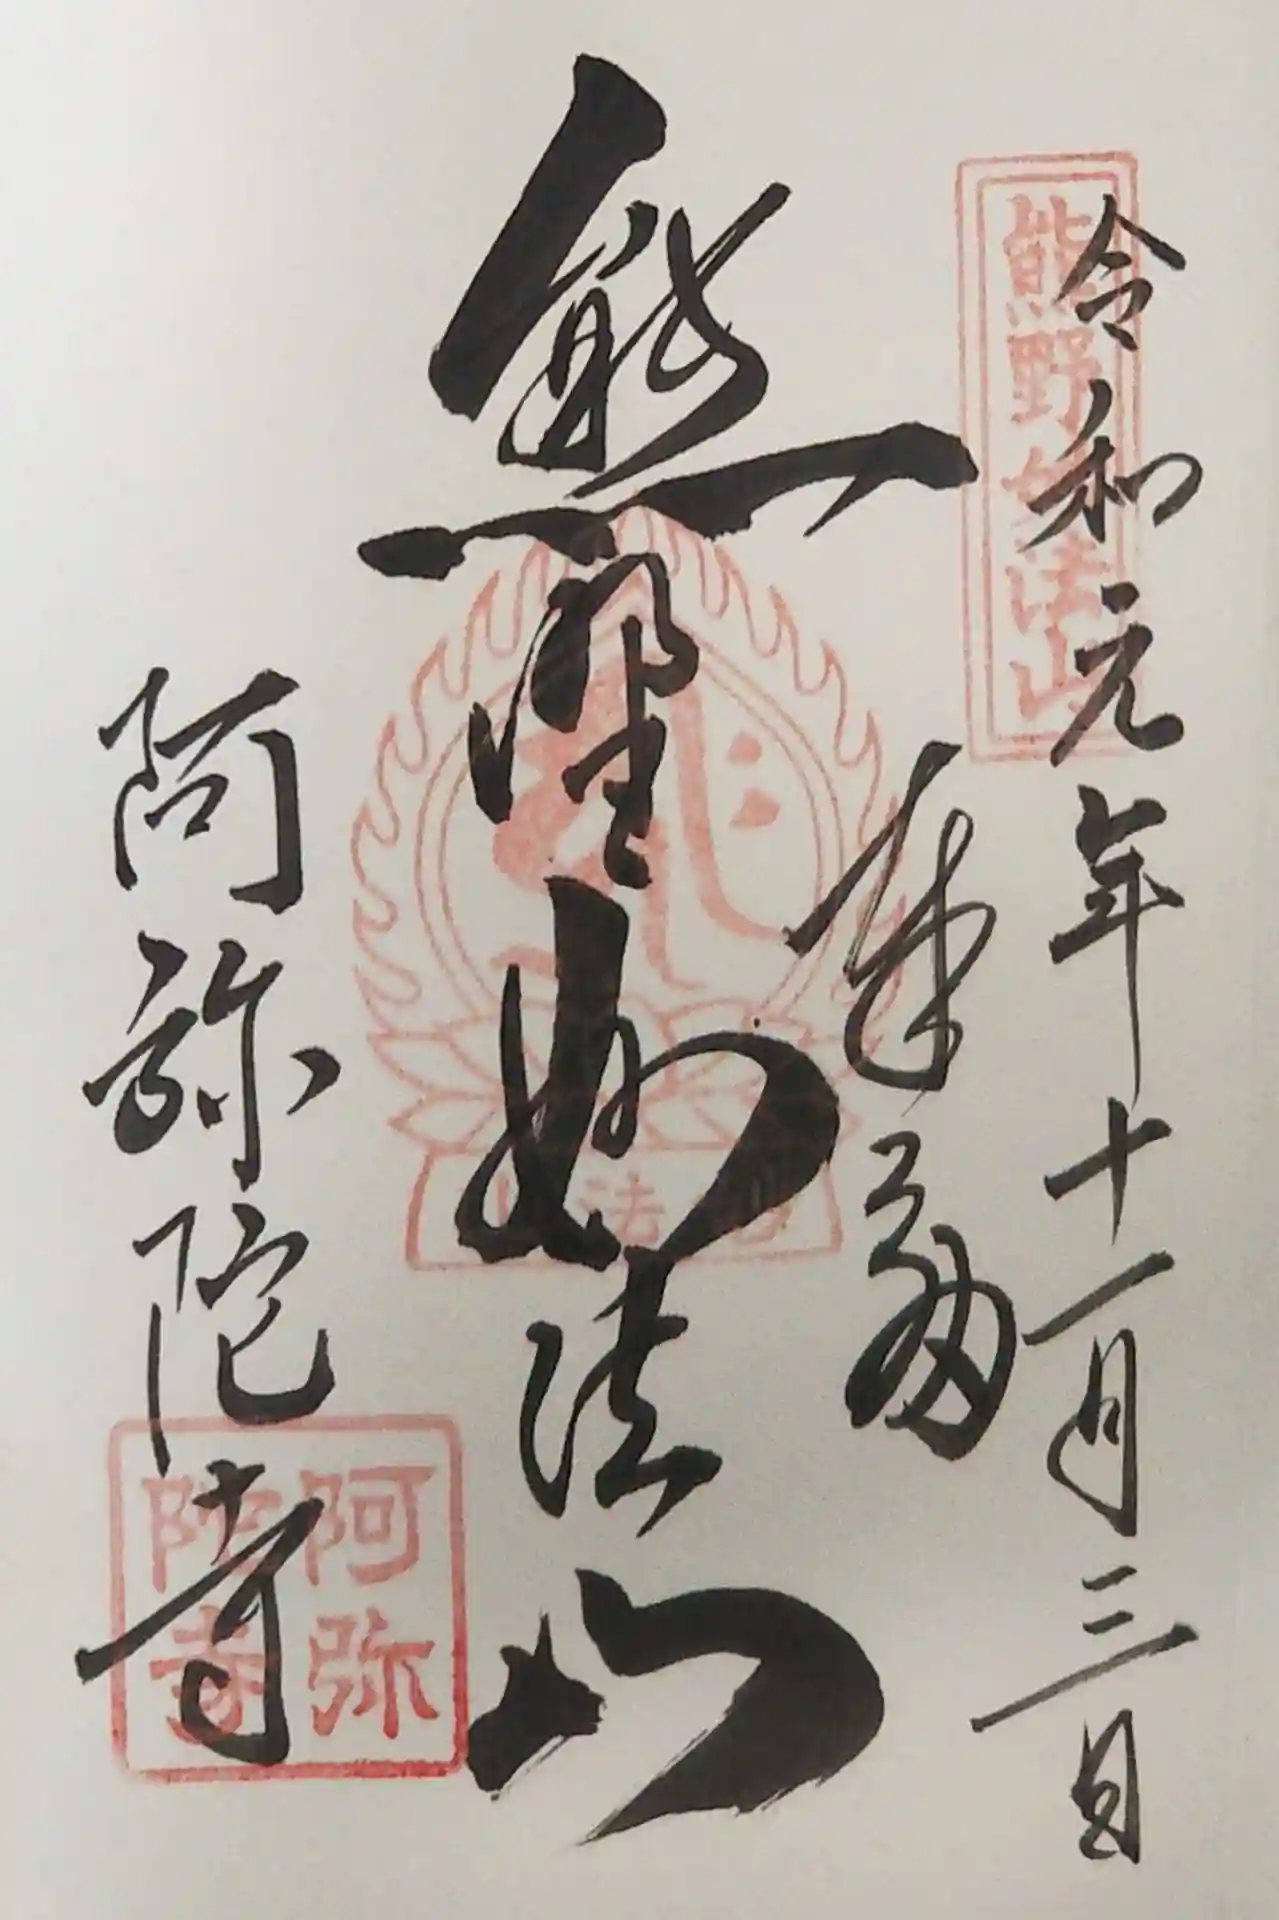 令和元年十一月三日
奉拝
熊野妙法山
阿弥陀寺
熊野妙法山
妙法山
阿弥陀寺